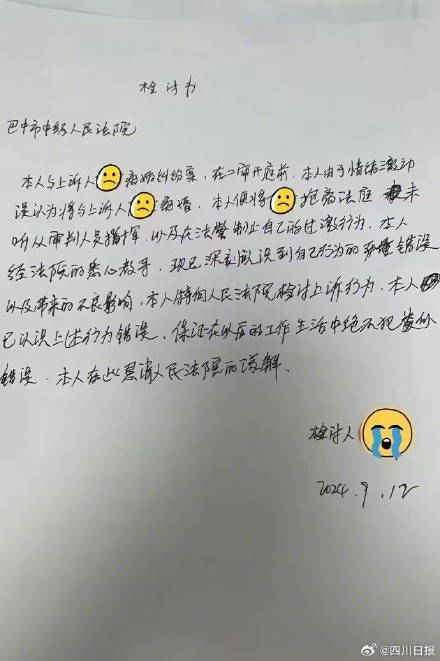 检讨书
巴中市中级人民法院
本人与上诉人离婚纠纷案，在二审开庭前，本人由于情绪激动
误认为将与上诉人离婚，本人便将抱离法庭，未
听从审判人员指挥，以及在法警制止自己的过激行为，本人
经法院的悉心教导，现已深刻认识到自己行为的错误
以及带来的不良影响，本人特向人民法院检讨上诉行为，本人
已认识上述行为错误，保证在以后的工作生活中绝不犯类似
错误，本人在此恳请人民法院的谅解。
检讨人
2024.9.12
@四川日报